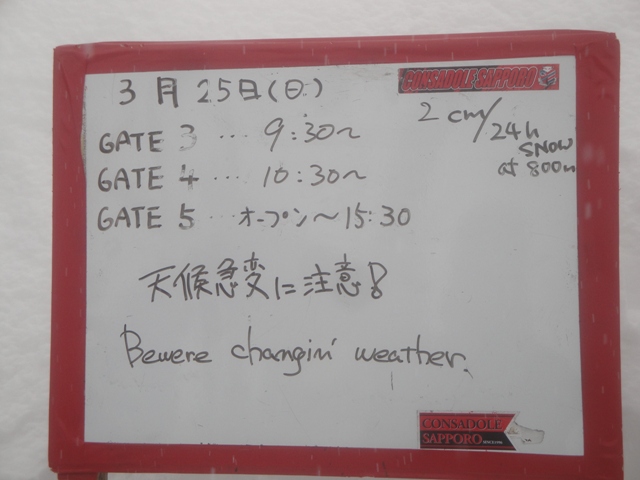 3月25日(日)
CONSADOLE SAPPORO
2cm/24h
SNOW
at 800m
GATE 3 … 9:30~
GATE 4 … 10:30~
GATE 5 … オープン~15:30
天候急変に注意!
Bewere changin' weather.
CONSADOLE
SAPPORO